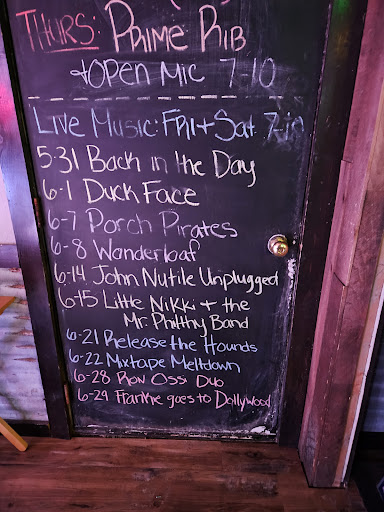 THURS: PRIME RIB
+ OPEN MIC 7-10
LIVE MUSIC: FRI + SAT 7-10
5-31 BACK IN THE DAY
6-1 DUCK FACE
6-7 PORCH PIRATES
6-8 Wonderloaf
6-14 JOHN NUTILE UNPLUGGED
6-15 LITTLE NIKKI + the
MR. PHILTHY BAND
6-21 RELEASE THE HOUNDS
6-22 MIXTAPE MELTDOWN
6-28 RON OSSI DUO
6-29 FRANKIE GOES TO DOLLYWOOD